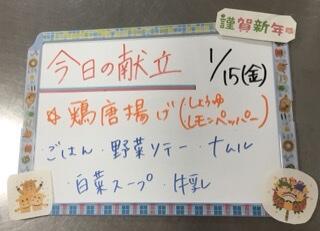 謹賀新年
今日の献立 1/15(金)
☆鶏唐揚げ(しょうゆ
レモンペッパー)
・ごはん・野菜ソテー・ナムル
・白菜スープ・牛乳